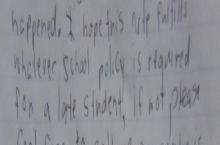 happened. I hope this note fulfills
whatever school policy is required
for a late student, if not please
feel free to call